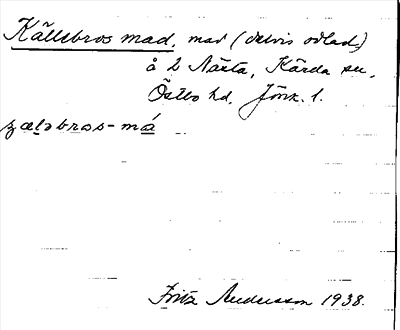 Källsbros mad, mad (delvis odlad)
å 2 Nästa, Kärda sn,
Östbo hd, Jönk. l.
sælsbros-má
Fritz Andersson 1938.